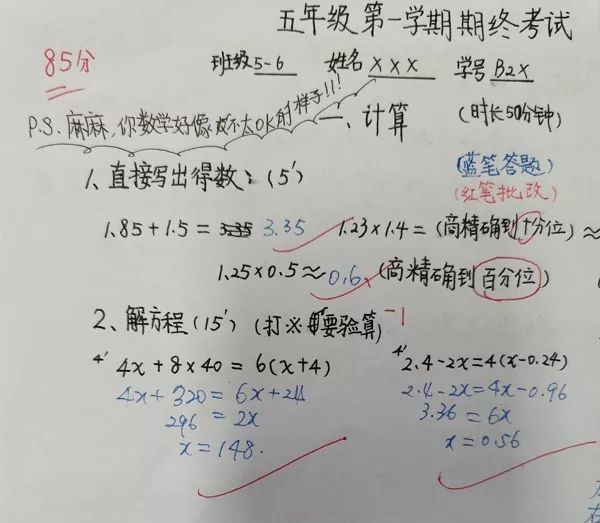 五年级第一学期期终考试
85分
班级5-6 姓名XXX 学号B2X
P.S.麻麻,你数学好像也不太OK的样子!!!
一、计算 (时长50分钟)
(蓝笔答题)
(红笔批改)
1、直接写出得数:(5')
1.85+1.5= 3.35 1.23×1.4=(高精确到十分位)≈
1.25×0.5≈0.6 (高精确到百分位)
2、解方程(15')(打※要验算) -1
4' 4x+8×40=6(x+4) 4' 2.4-2x=4(x-0.24)
4x+320=6x+24 2.4-2x=4x-0.96
296=2x 3.36=6x
x=148. x=0.56